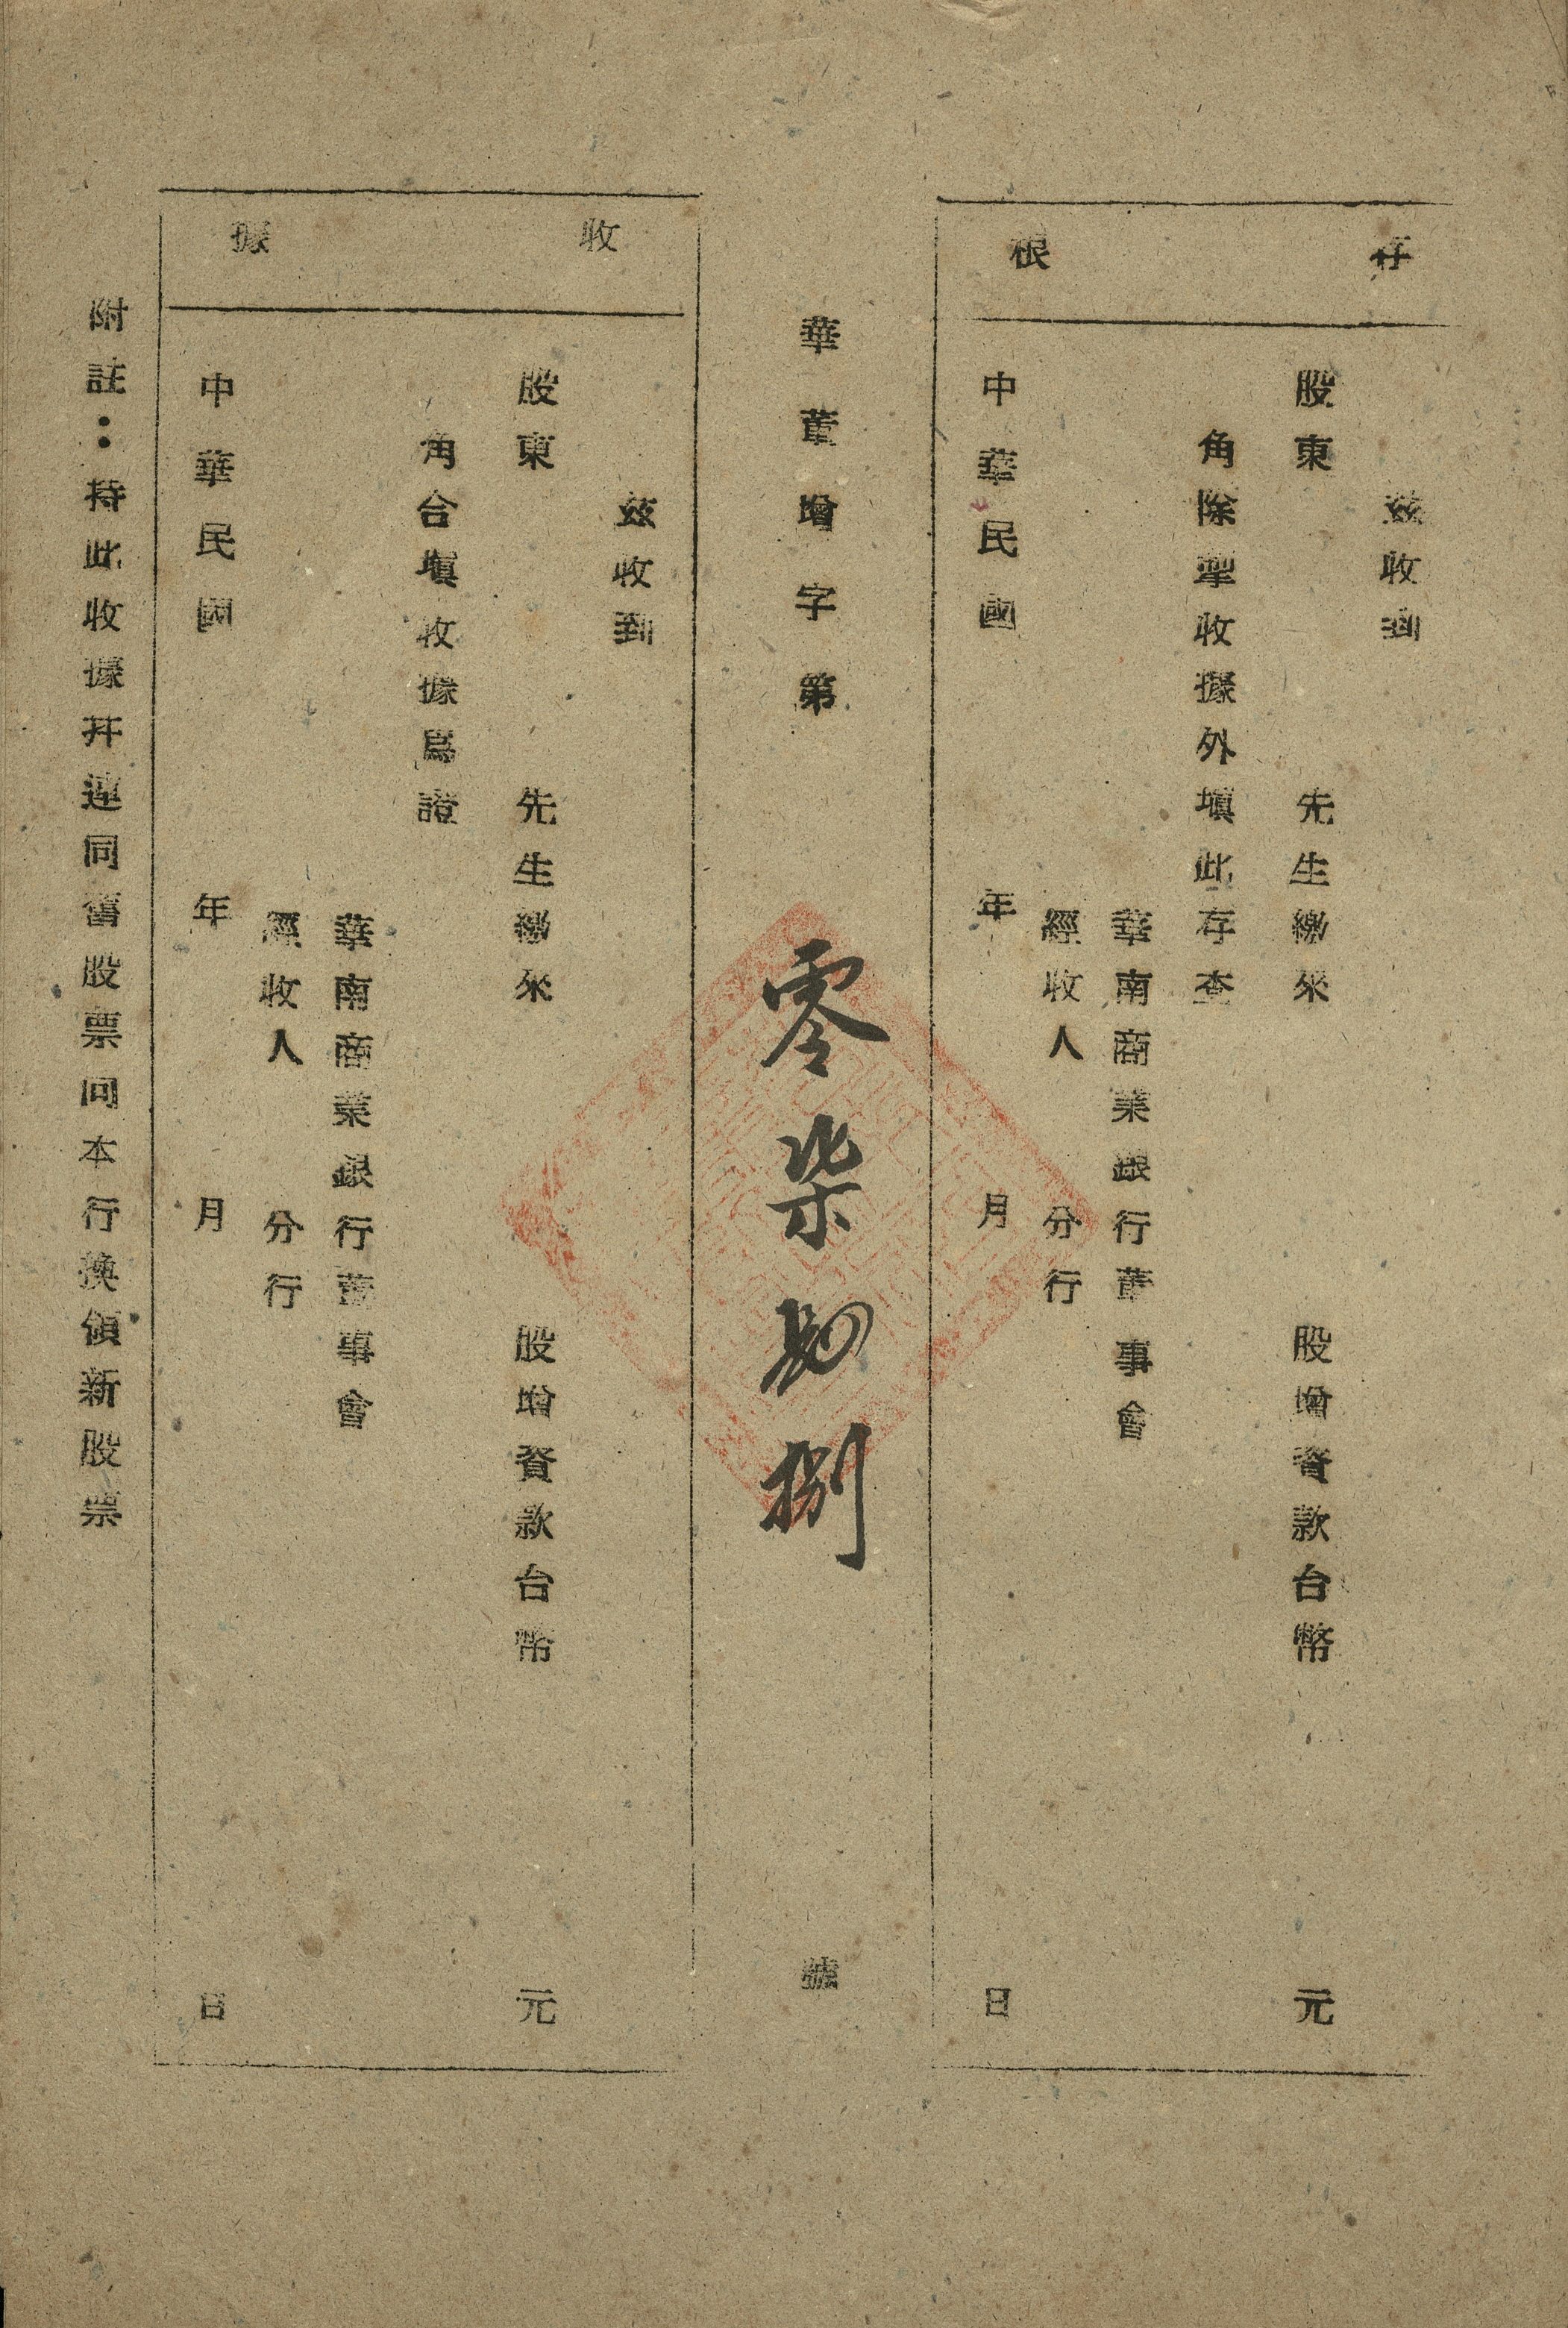 存根
茲收到
股東 先生繳來 股增資款台幣 元
角除掣收據外填此存查
華南商業銀行董事會
經收人 分行
中華民國 年 月 日
華董增字第 零柒 捌 號
收據
茲收到
股東 先生繳來 股增資款台幣 元
角合填收據爲證
華南商業銀行董事會
經收人 分行
中華民國 年 月 日
附註：持此收據幷連同舊股票向本行換領新股票